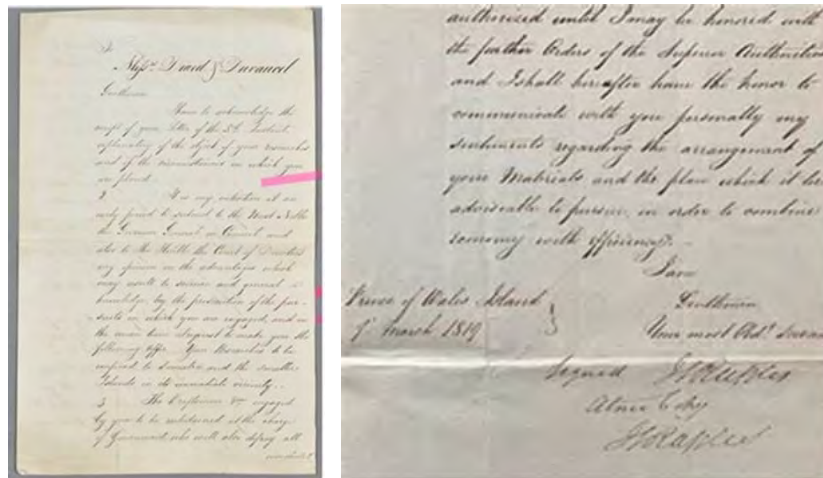 To
Messrs. Diard & Duvaucel
Gentlemen
I have to acknowledge the
receipt of your letter of the 5th Instant
explanatory of the object of your researches
and of the circumstances in which you
are placed.
2 It is my intention at an
early period to submit to the Most Noble
the Governor General in Council and
also to the Honble the Court of Directors
my opinion on the advantages which
may result to science and general
knowledge by the prosecution of the pur-
suits in which you are engaged, and in
the mean time I request to make you the
following offer. Your Researches to be
confined to Sumatra and the smaller
Islands in its immediate vicinity.
3 The Draftsmen &ca engaged
by you to be maintained at the charge
of Government who will also defray all
authorized until I may be honored with
the further Orders of the Superior Authorities
and I shall hereafter have the honor to
communicate with you personally my
sentiments regarding the arrangement of
your Materials and the plan which it be
adviseable to pursue in order to combine
economy with efficiency.
I am
Gentlemen
Your most Obdt. Servant
Prince of Wales Island
March 1819
Signed TSRaffles
A true Copy
TSRaffles